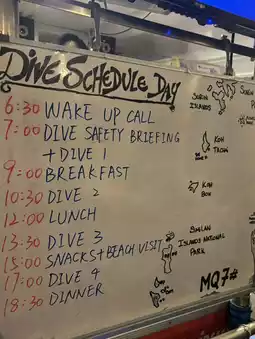 DIVE SCHEDULE DAY
6:30 WAKE UP CALL
7:00 DIVE SAFETY BRIEFING
+ DIVE 1
9:00 BREAKFAST
10:30 DIVE 2
12:00 LUNCH
13:30 DIVE 3
15:00 SNACKS + BEACH VISIT
17:00 DIVE 4
18:30 DINNER
SURIN
ISLANDS
KOH
TACHAI
KOH
BON
SIMILAN
ISLANDS NATIONAL
PARK